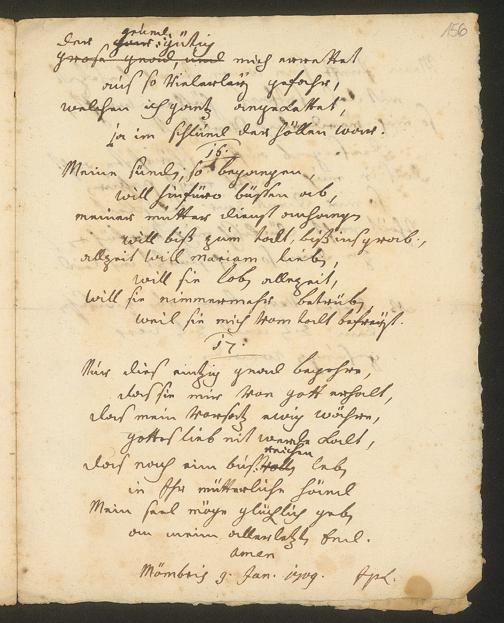 156
der gütig
mich errettet
aus so vielerleÿ gefahr,
welchen ich gantz angekettet,
ja im schlund der höllen war.
16.
Meine sünd, so begangen,
will hinfüro büssen ab,
meiner mutter dienst anhangen
will biß zum todt, biß ins grab.,
allzeit will mariam lieben,
will sie loben allezeit,
will sie nimmermehr betrüben,
weil sie mich vom todt befreÿt.
17.
Nur dies eintzig gnad begehre,
das sie mir von gott erhalt,
das mein vorsatz ewig währe,
gottes lieb nit werde kalt,
das nach eim buß reichen leben
in Ihr mütterliche händ
Mein seel möge glücklich geben
an meim allerletzten End.
amen
Mömbris 9. Jan. 1709.